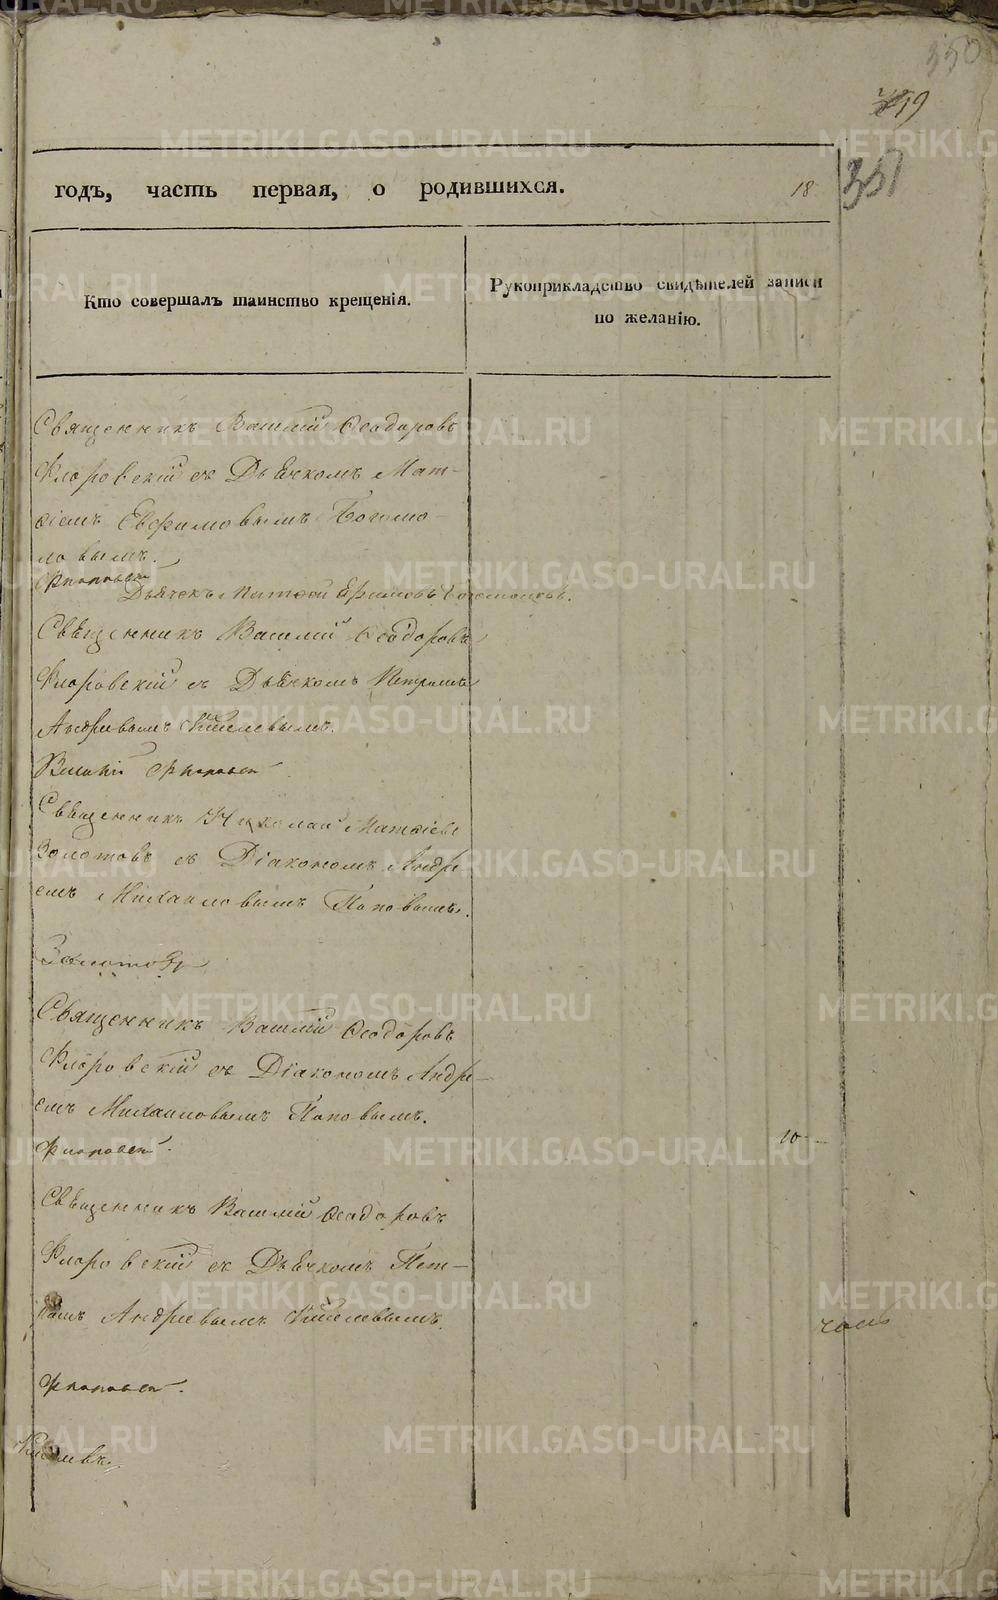 350
19
351
годъ, часть первая, о родившихся.
18
Кто совершалъ таинство крещенія.
Рукоприкладство свидѣтелей записи
по желанію.
Священникъ Василій Ѳеодоровъ
Флоровскій съ Дьячкомъ Мат-
ѳіемъ Евфимовымъ Богомо-
ловымъ.
Флоровскій
Дьячекъ Матѳей Ефимовъ Богомоловъ.
Свѣщенникъ Василій Ѳеодоровъ
Флоровскій съ Дьѣчкомъ Петромъ
Андревымъ Киселевымъ.
Василій Флоровскій
Свѣщенникъ Николай Матѳіевъ
Золотовъ съ Діакономъ Андре
емъ Михаиловымъ Поповымъ.
Золотовъ
Священникъ Василій Ѳеодоровъ
Флоровскій съ Діакономъ Андре-
емъ Михаиловымъ Поповымъ.
Флоровскій.
10
Свѣщенникъ Василій Ѳеодоровъ
Флоровскій съ Дьѣчкомъ Пет-
ромъ Андревымъ Киселевымъ.
Флоровскій.
Киселевъ.
METRIKI.GASO-URAL.RU